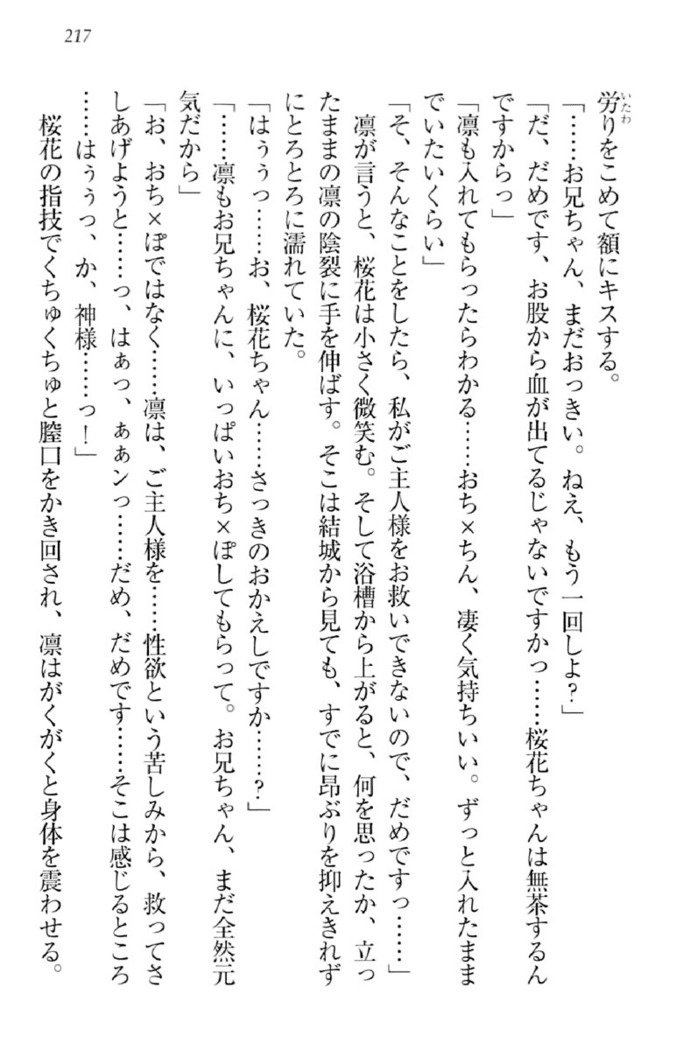 217
労りをこめて額にキスする。
いたわ
「……お兄ちゃん、まだおっきい。ねえ、もう一回しよ?」
「だ、だめです、お股から血が出てるじゃないですかっ……桜花ちゃんは無茶するん
ですからっ」
「凛も入れてもらったらわかる……おち×ちん、凄く気持ちいい。ずっと入れたまま
でいたいくらい」
「そ、そんなことをしたら、私がご主人様をお救いできないので、だめですっ……」
凛が言うと、桜花は小さく微笑む。そして浴槽から上がると、何を思ったか、立っ
たままの凛の陰裂に手を伸ばす。そこは結城から見ても、すでに昂ぶりを抑えきれず
にとろとろに濡れていた。
「はぅぅっ……お、桜花ちゃん……さっきのおかえしですか……?」
「……凛もお兄ちゃんに、いっぱいおち×ぽしてもらって。お兄ちゃん、まだ全然元
気だから」
「お、おち×ぽではなく……凛は、ご主人様を……性欲という苦しみから、救ってさ
しあげようと……っ、はぁっ、ぁぁンっ……だめ、だめです……そこは感じるところ
……はぅぅっ、か、神様……っ!」
桜花の指技でくちゅくちゅと膣口をかき回され、凛はがくがくと身体を震わせる。